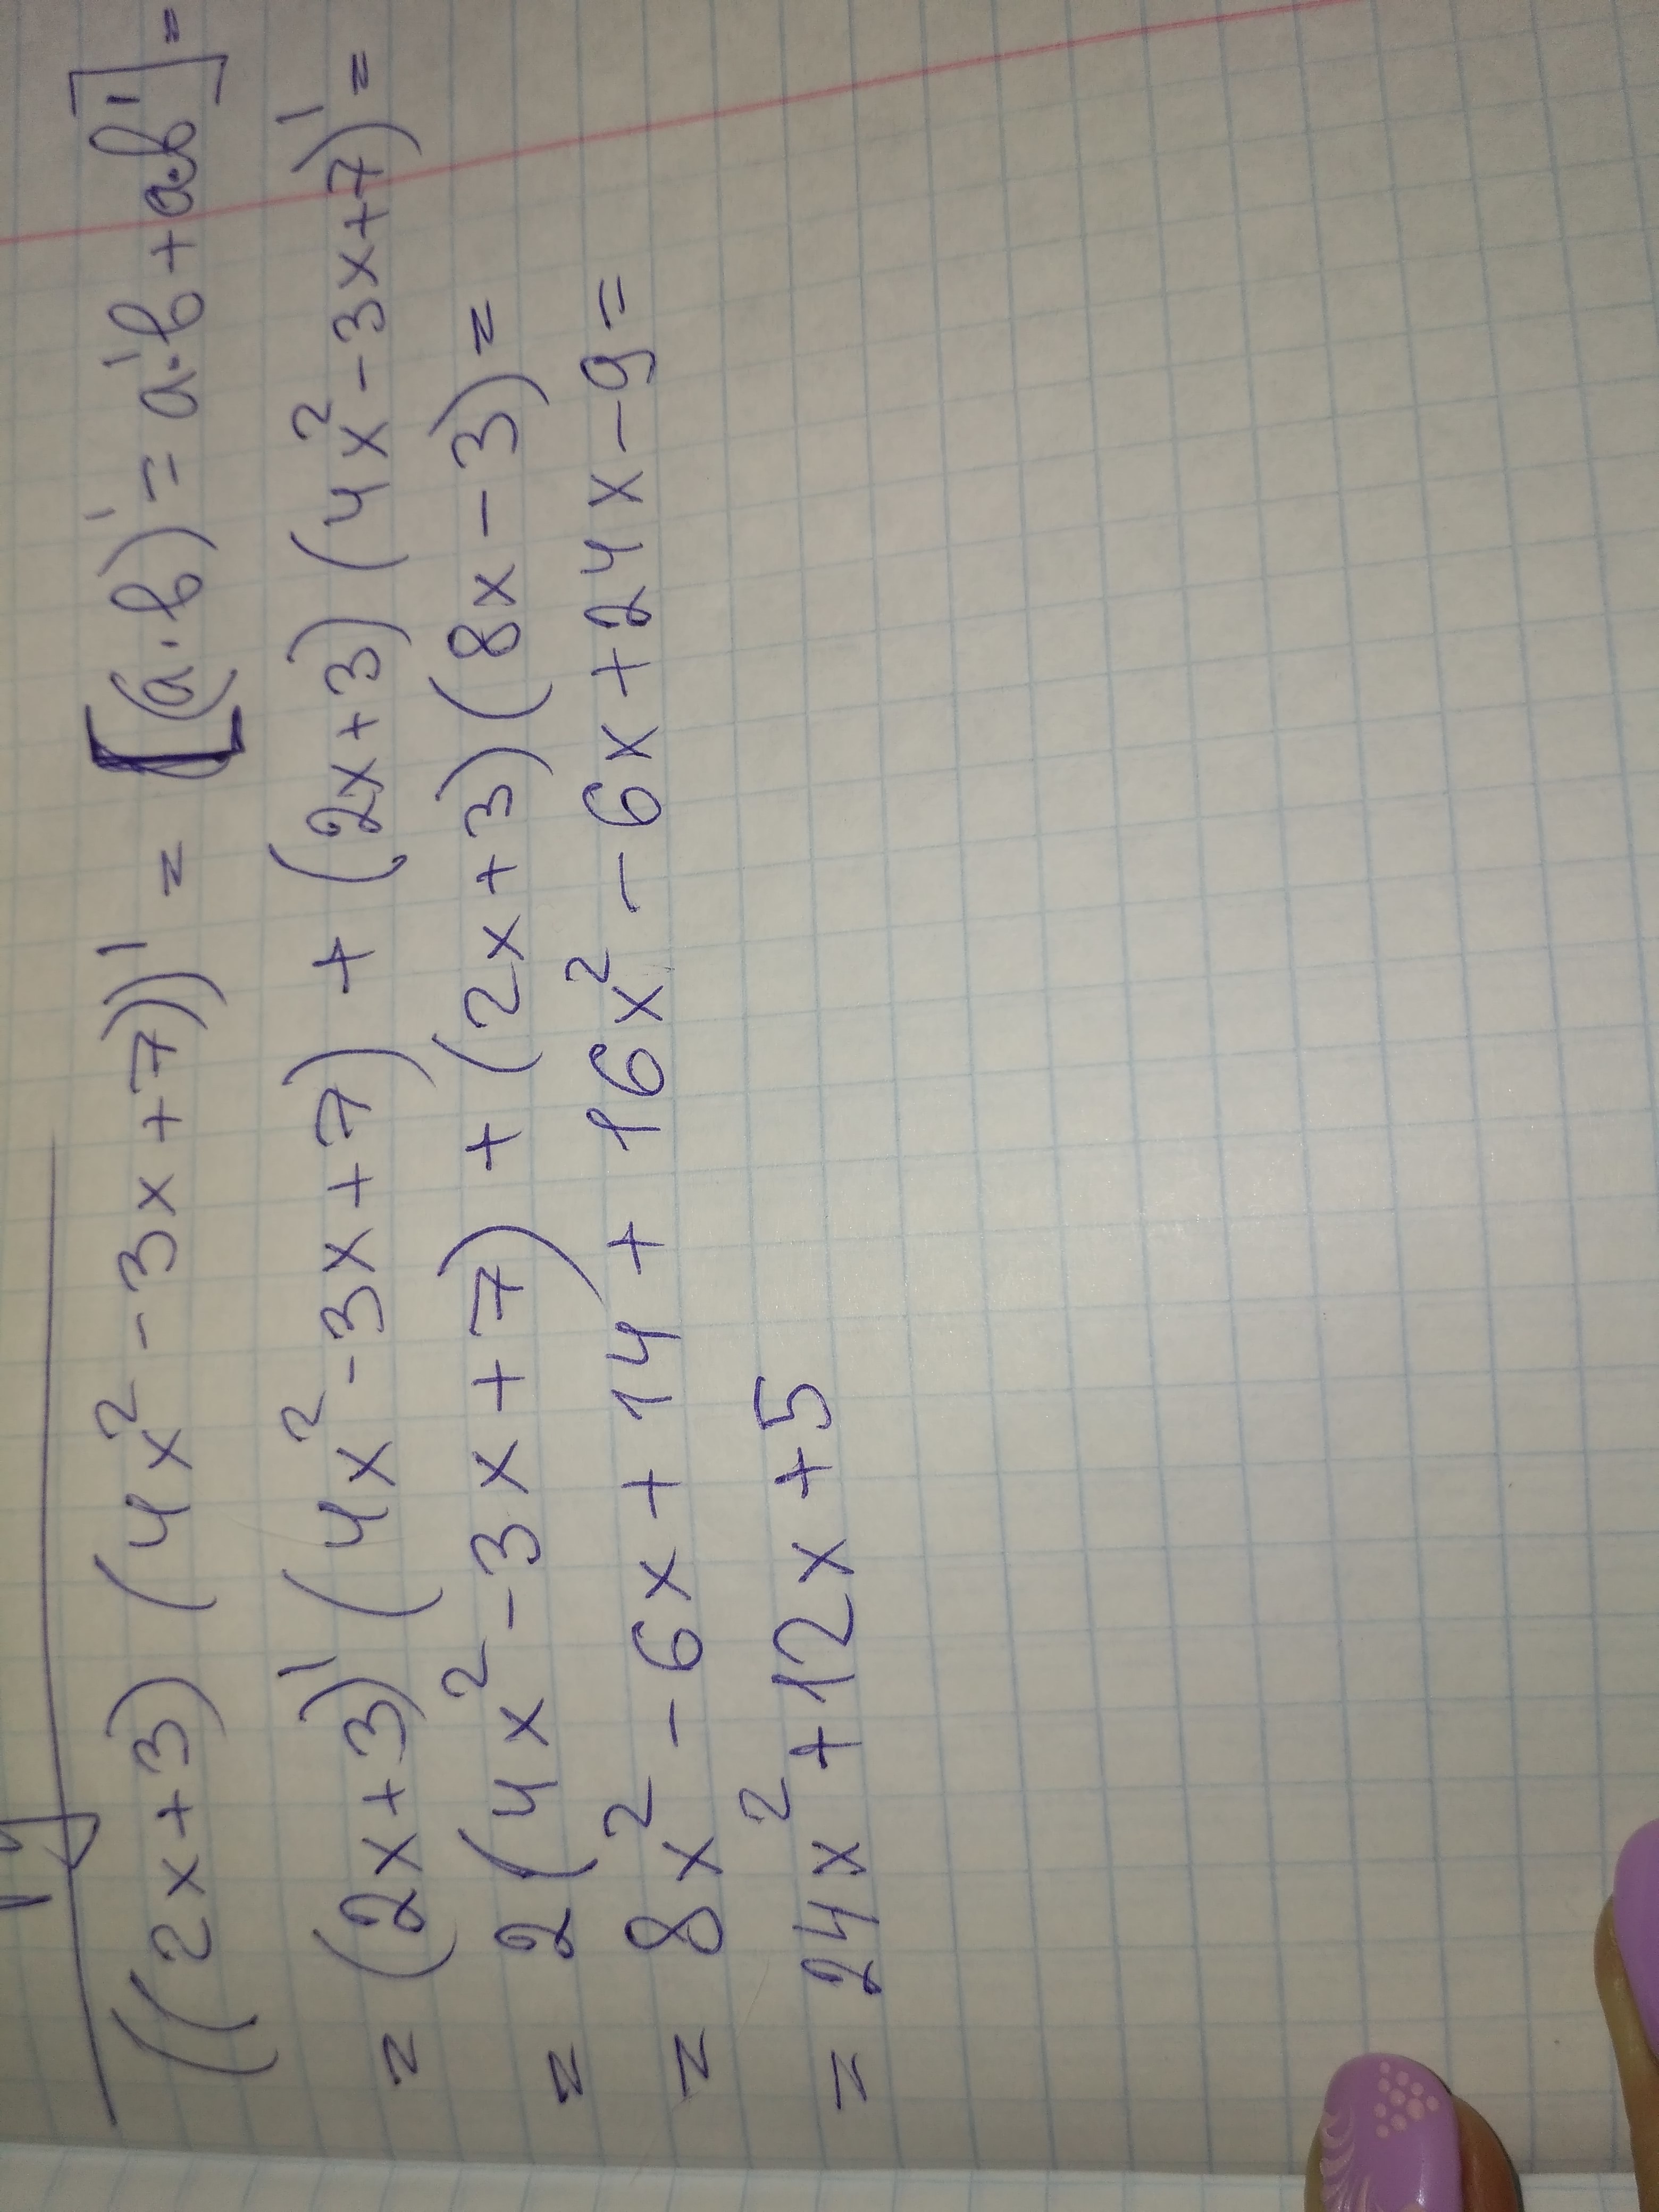 ((2x+3) (4x² -3x+7))' = [(a·b)' = a'·b + a·b'] =
= (2x+3)' (4x² -3x+7) + (2x+3) (4x² -3x+7)' =
= 2(4x² -3x+7) + (2x+3)(8x-3) =
= 8x² - 6x + 14 + 16x² - 6x + 24x - 9 =
= 24x² + 12x + 5